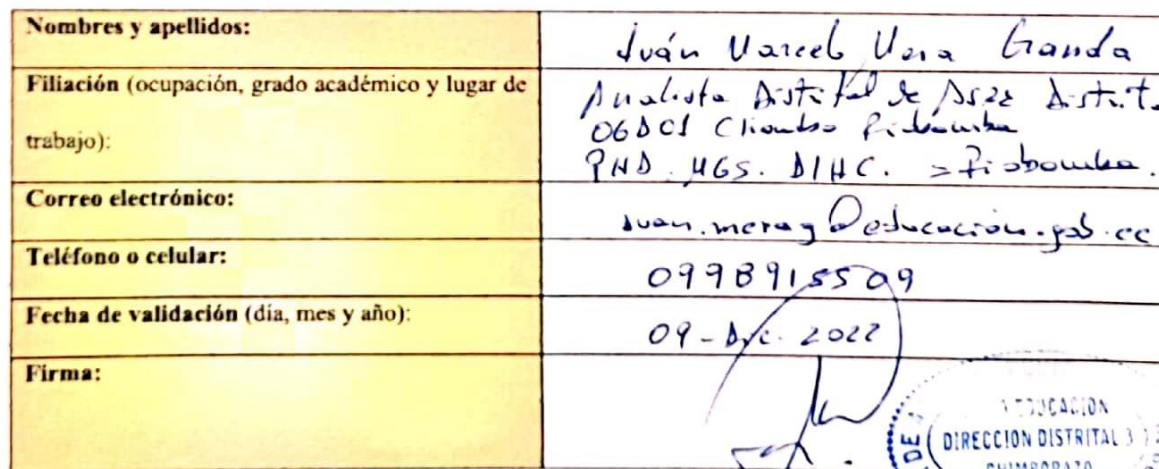 Nombres y apellidos:
Iván Marcelo Mera Granda
Filiación (ocupación, grado académico y lugar de
trabajo):
Analista Distrital de Distrit
06D01 Chambo Riobamba
PHD. MGS. Riobamba.
Correo electrónico:
ivan.merag@educacion.gob.ec
Teléfono o celular:
0998915509
Fecha de validación (día, mes y año):
09-Dic. 2022
Firma:
EDUCACION
DE
DIRECCION DISTRITAL
CHIMBORAZO